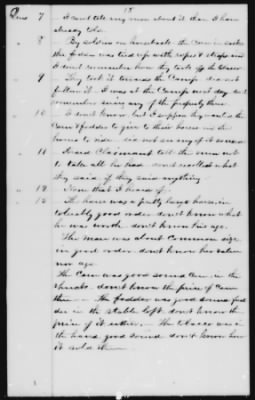 18
Ques 7 I cant tell any more about it than I have
already told.
" 8 By soldiers on horseback. the corn in sacks
the fodder was tied up with ropes & straps and
I dont remember how they took off the
" 9 They took it towards the Camp. did not
follow it. I was at the Camp next day dont
remember seeing any of the property there
" 10 I dont know but I suppose they wanted the
Corn & fodder to give to their horses and the
horse to ride. did not see any of it used
" 11 heard Claimant tell the men not
to take all he had dont recollect what
they said if they said anything
" 12 None that I heard of
" 13 The horse was a pretty large horse, in
tolerably good order dont know what
he was worth dont know his age.
The mare was about Common size
in good order dont know her value
nor age.
The Corn was good sound corn in the
shucks dont know the price of corn
then The fodder was good sound fod
der in the stable loft dont know the
price of it either. The tobacco was in
the hand good sound dont know how
it sold then